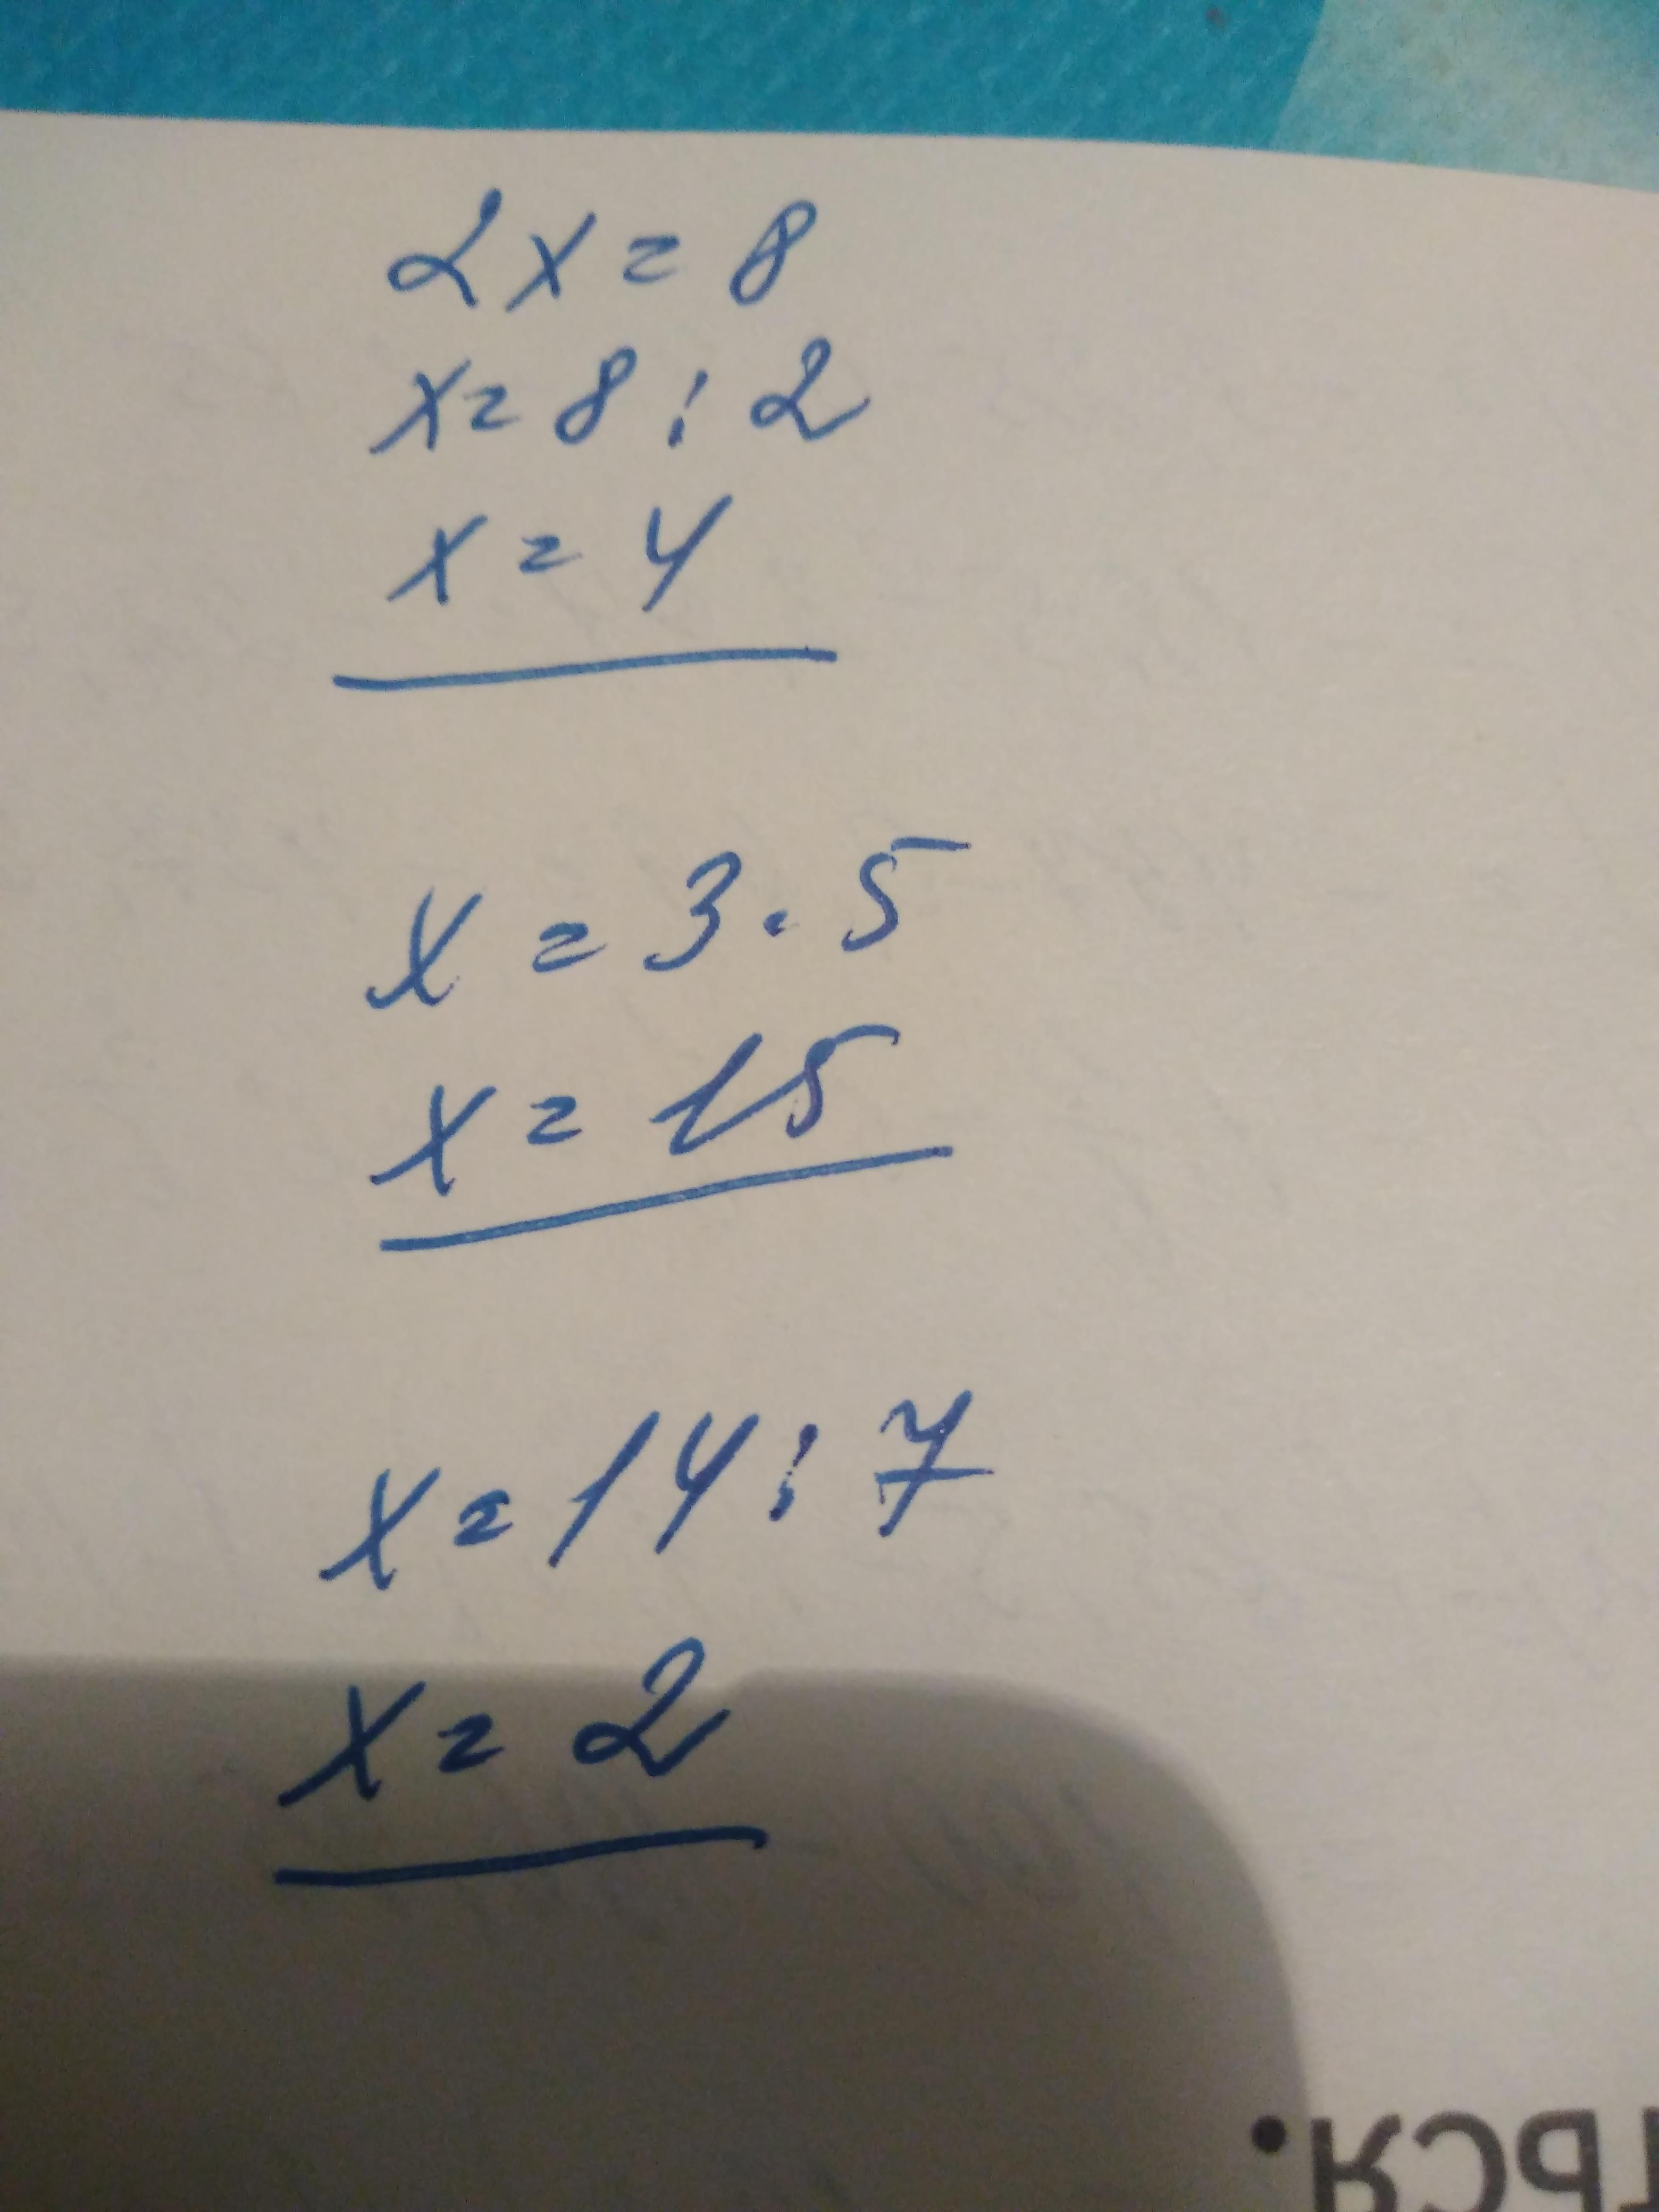 2x = 8
x = 8 : 2
x = 4
x = 3 · 5
x = 15
x = 14 : 7
x = 2
ться.